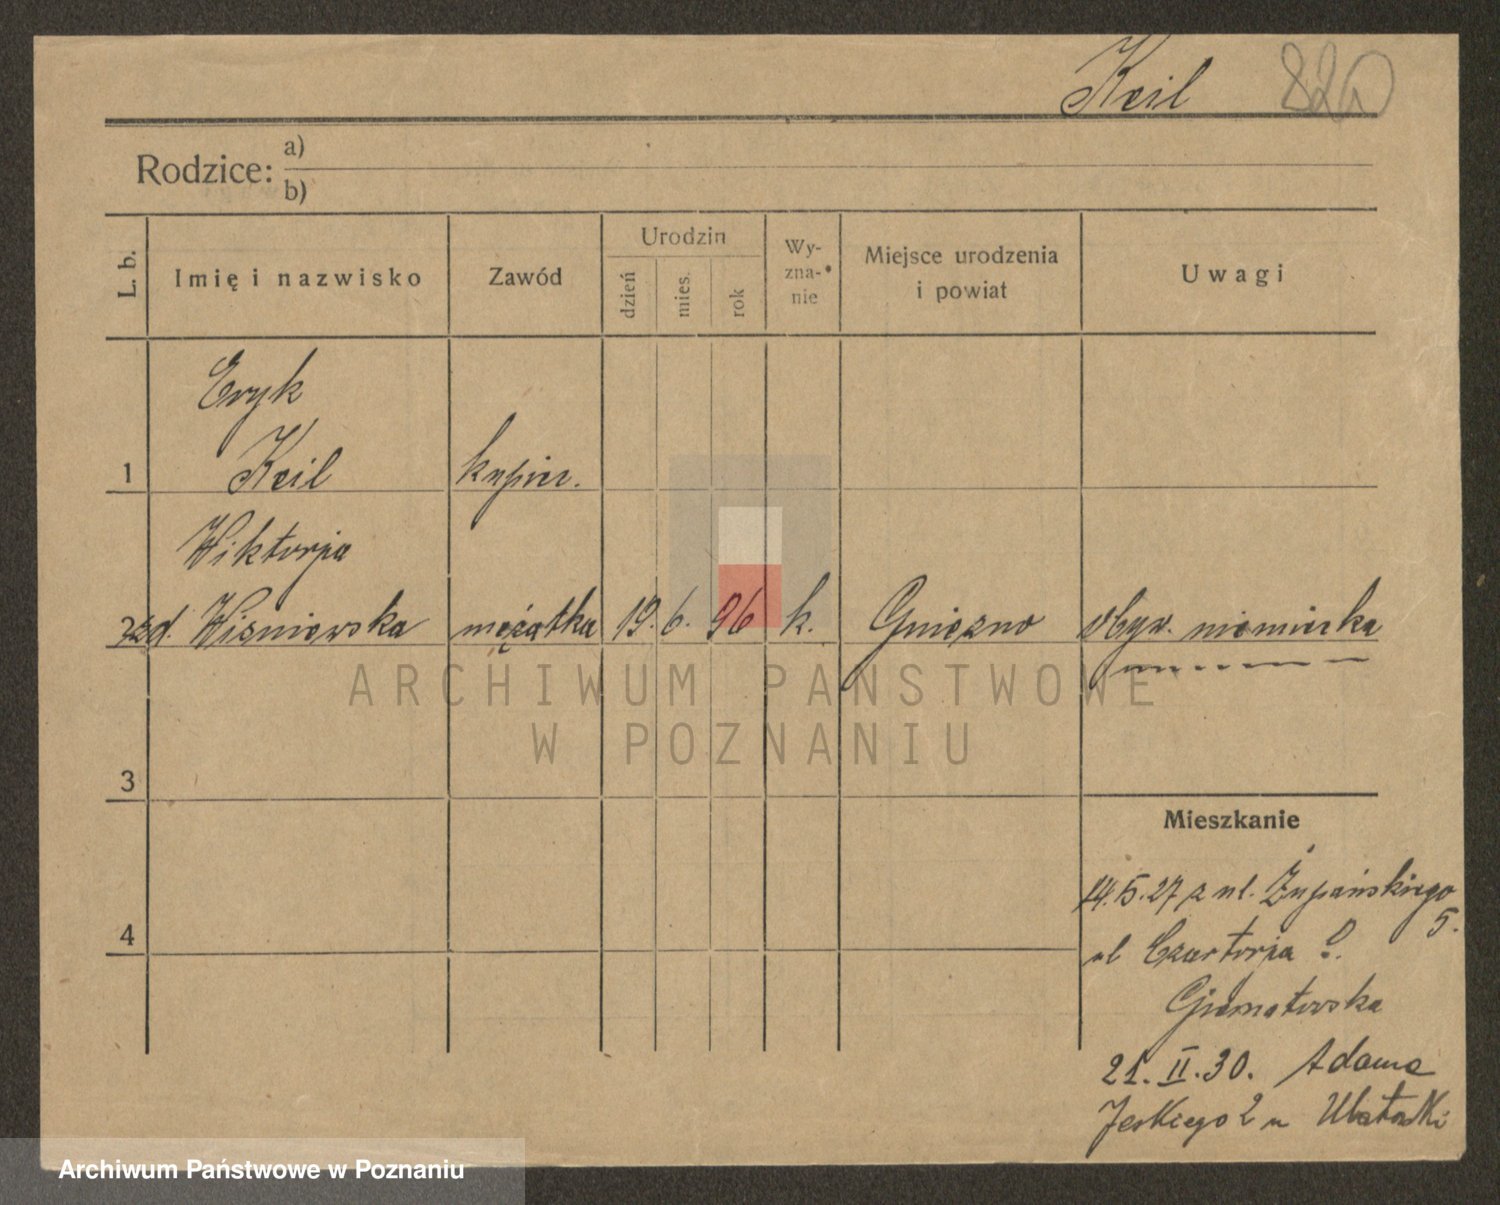 Keil 820
Rodzice: a)
b)
L. b.
Imię i nazwisko
Zawód
Urodzin
dzień
mies.
rok
Wy-
zna-
nie
Miejsce urodzenia
i powiat
Uwagi
Eryk
1 Keil kupiec.
Wiktorja
2 zd. Wisniewska mężatka 19. 6. 96 k. Gniezno obyw. niemiecka
ARCHIWUM PAŃSTWOWE
W POZNANIU
3
Mieszkanie
14.5.27 z ul. Żupańskiego
5.
4
ul Czartorja
21. II. 30. Adama
Jeskiego 2 u
Archiwum Państwowe w Poznaniu